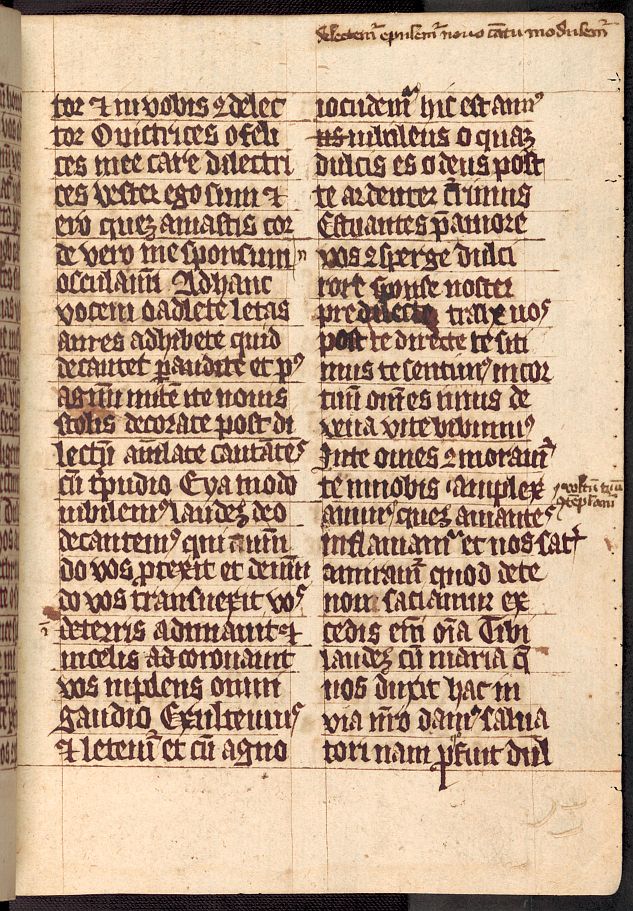 delectem᷑ epulem᷑ novo cantu modulem᷑
tor ⁊ in vobis ⁊ delec
tor O victrices o feli
ces mee care dilectri
ces vester ego sum ⁊
ero quez amastis cor
de vero me sponsum
osculami Ad hanc
vocem o adlete letas
aures adhibete quid
decantet paudite et p9
agnū mitē ite nouis
stolis decorate post di
lectū amlate cantātes
cū tpudio Eya modo
iubilem9 laudez deo
decantem9 qui
do vos ptexit et demū
do vos transuexit vos
de terris adunauit ⁊
in celis ad coronauit
vos inplens omni
gaudio Exultemus
⁊ letem᷑ et cū agno
iocūdem᷑ hic est ann9
iubileus o quaz
dulcis es o deus post
te ardenter
Estuantes p amore
vos ⁊ sperge dulci
rore sponse noster
predilecte traxe nos
post te directe te siti
mus te sentim9 in cor
tuū omēs imus de
vena vite bebimus
Inte omes ⁊ moram᷑
te in nobis amplex
amur quez amantes
inflamam᷑ et nos sat᷑
amiram᷑ quod de te
non saciamur ex
cedis em̄ oīa Tibi
laudez cū maria q̄
nos duxit hac in
via nr̄o dam9 salua
tori nam pfuit dul